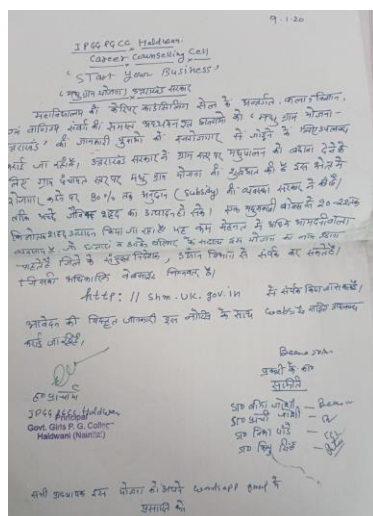 9.1.20
IPGGPGCG Haldwani
Career Counselling Cell
'Start Your Business'
(मधु ग्राम योजना) उत्तराखंड सरकार
महाविद्यालय की कैरियर काउंसिलिंग सेल के अन्तर्गत, कला, विज्ञान,
एवं वाणिज्य संवर्ग की समस्त छात्राओं को 'मधु ग्राम योजना-
उत्तराखंड' की जानकारी स्वरोजगार से जोड़ने के लिए उपलब्ध
कराई जा रही है। उत्तराखंड सरकार ने ग्राम स्तर पर मधुपालन को बढ़ावा देने के
लिए ग्राम पंचायत स्तर पर मधु ग्राम योजना की शुरुआत की है इस क्षेत्र में
रोजगार करने पर 80% तक अनुदान (Subsidy) की व्यवस्था सरकार ने की है।
ताकि जैविक शहद का उत्पादन हो सके। एक मधुमक्खी बॉक्स से 20-22
किलोग्राम शहद उत्पादन किया जा रहा है। यह कम मेहनत में अधिक आमदनी वाला
व्यवसाय है। इस योजना का लाभ उठा
जिले के संयुक्त निदेशक, उद्यान विभाग से संपर्क कर सकते हैं।
जिसकी अधिकारिक वेबसाइट निम्नवत है।
http://shm.uk.gov.in से संपर्क किया जा सकता है।
आवेदन की विस्तृत जानकारी इस नोटिस के साथ website सहित उपलब्ध
कराई जा रही है।
ह० प्राचार्य
IPGGPGCG Haldwani
Principal
Govt. Girls P. G. College
Haldwani (Nainital)
प्रभारी के ह०
समिति
डा० बीना जोशी
डा० प्राची जोशी
डा० रितु सिंह
सभी प्राध्यापक इस योजना को अपने whatsapp group में
प्रसारित करें